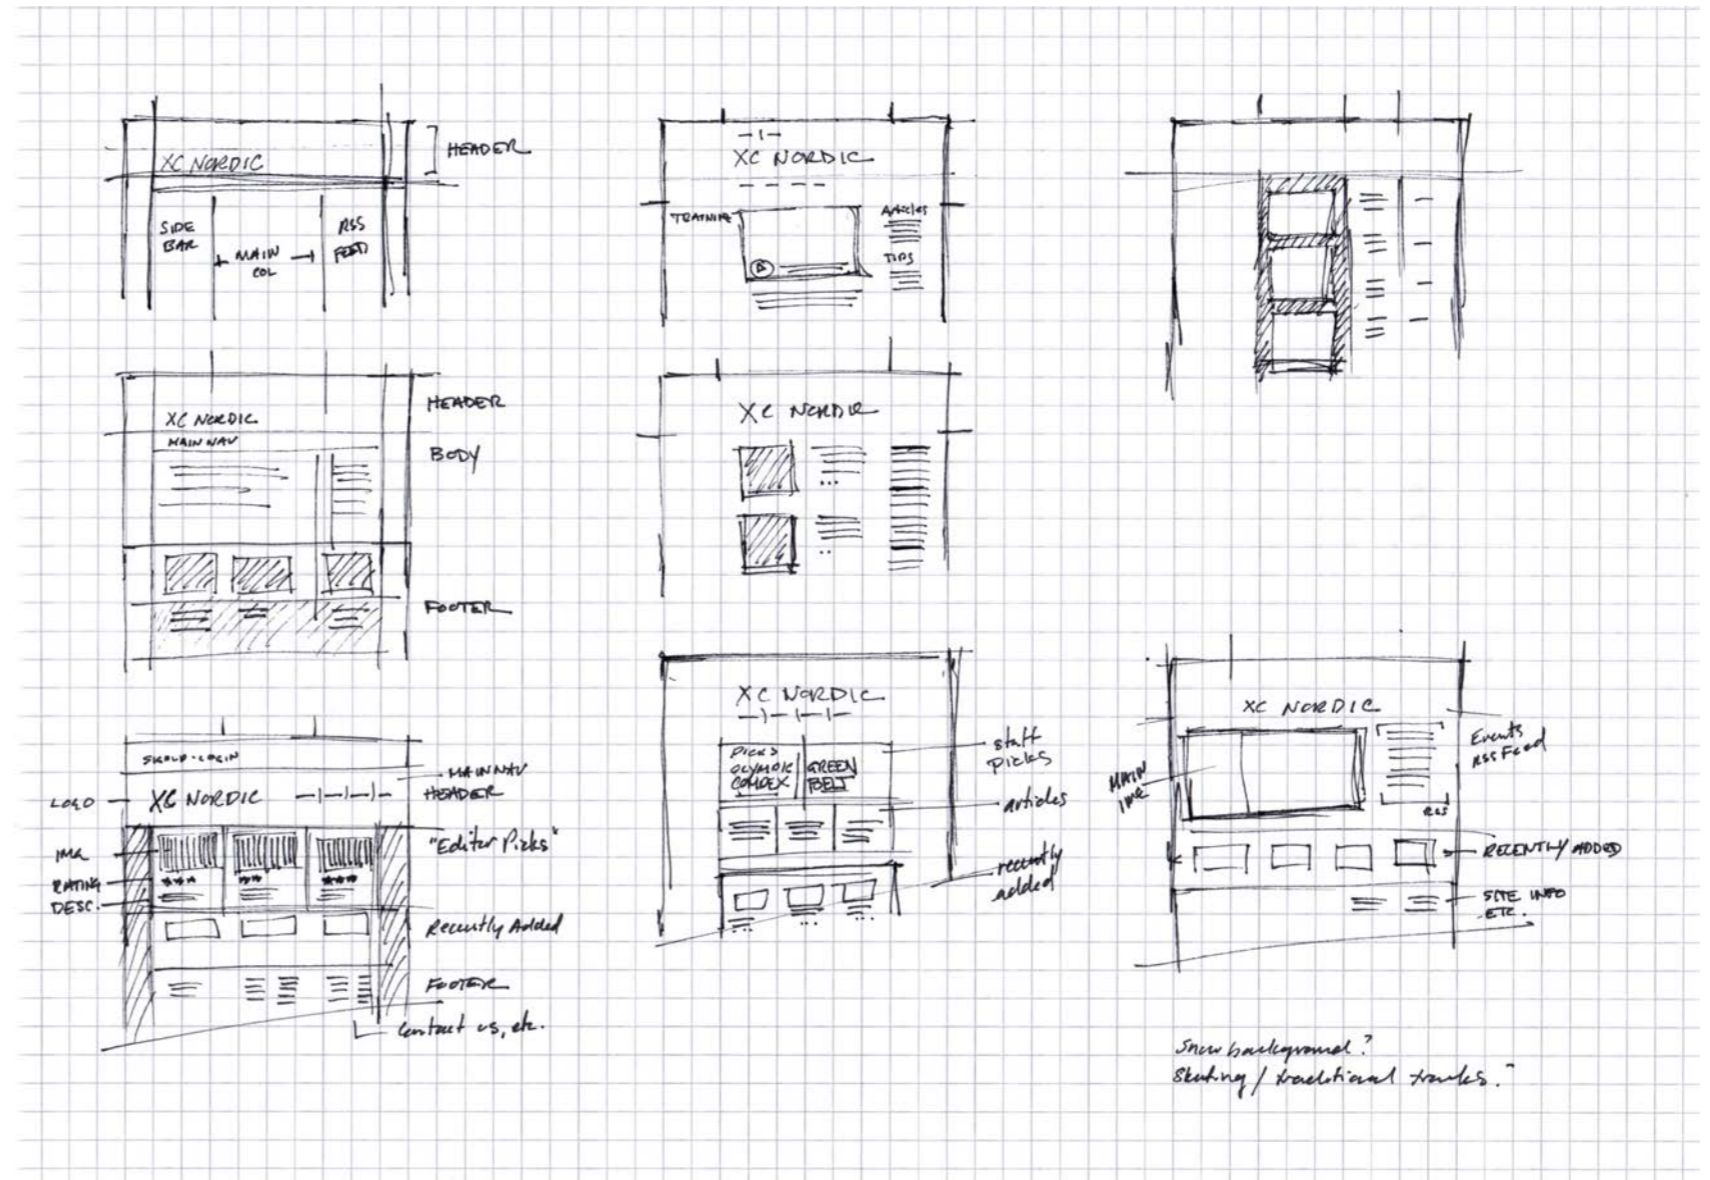 XC NORDIC
HEADER
SIDE
BAR
MAIN
COL
RSS
FEED
XC NORDIC
MAIN NAV
HEADER
BODY
FOOTER
LOGIN
MAIN NAV
LOGO
XC NORDIC
HEADER
IMG
RATING
DESC.
"Editor Picks"
Recently Added
FOOTER
Contact us, etc.
XC NORDIC
TRAINING
Articles
TIPS
XC NORDIC
XC NORDIC
PICKS
OLYMPIC
COMPEX
GREEN
BELT
staff
picks
articles
recently
added
XC NORDIC
MAIN
IMG
Events
RSS Feed
RSS
RECENTLY ADDED
SITE INFO
ETC.
Snow background?
Skating / traditional tracks?